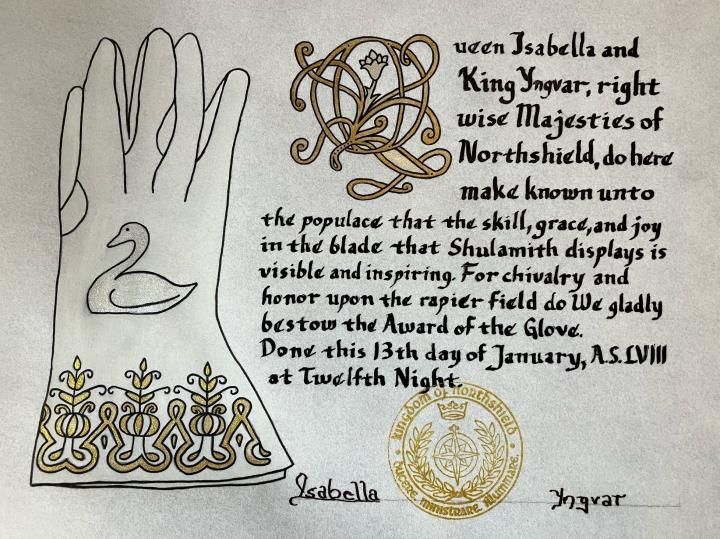 Queen Isabella and
King Yngvar, right
wise Majesties of
Northshield, do here
make known unto
the populace that the skill, grace, and joy
in the blade that Shulamith displays is
visible and inspiring. For chivalry and
honor upon the rapier field do We gladly
bestow the Award of the Glove.
Done this 13th day of January, A.S. LVIII
at Twelfth Night.
Kingdom of Northshield
Ducere, ministrare, illuminare
Isabella
Yngvar